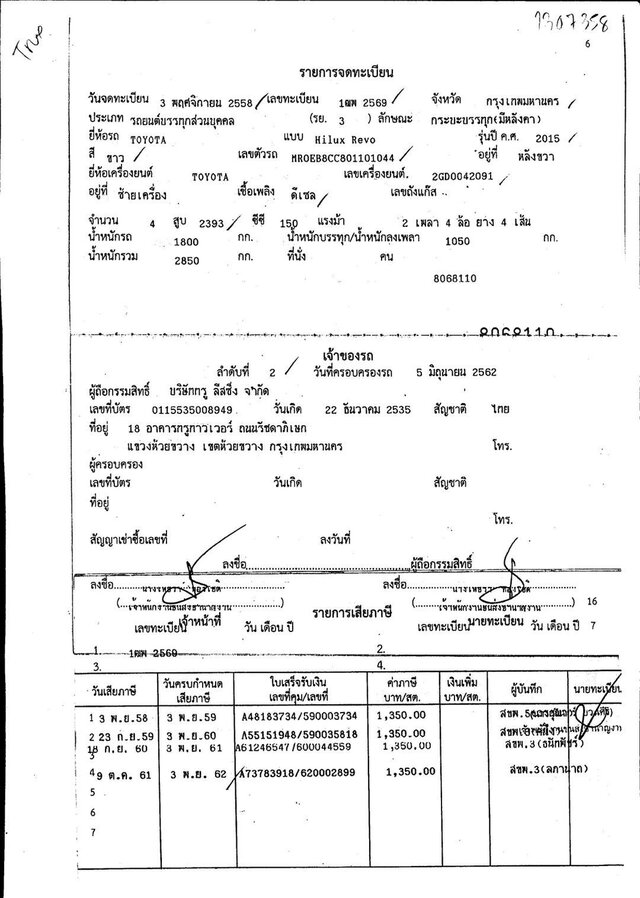 True
1307358
6
รายการจดทะเบียน
วันจดทะเบียน 3 พฤศจิกายน 2558 เลขทะเบียน 1ฒฬ 2569 จังหวัด กรุงเทพมหานคร
ประเภท รถยนต์บรรทุกส่วนบุคคล (รย. 3 ) ลักษณะ กระบะบรรทุก(มีหลังคา)
ยี่ห้อรถ TOYOTA แบบ Hilux Revo รุ่นปี ค.ศ. 2015
สี ขาว เลขตัวรถ MR0EB8CC801101044 อยู่ที่ หลังขวา
ยี่ห้อเครื่องยนต์ TOYOTA เลขเครื่องยนต์. 2GD0042091
อยู่ที่ ซ้ายเครื่อง เชื้อเพลิง ดีเซล เลขถังแก๊ส
จำนวน 4 สูบ 2393 ซีซี 150 แรงม้า 2 เพลา 4 ล้อ ยาง 4 เส้น
น้ำหนักรถ 1800 กก. น้ำหนักบรรทุก/น้ำหนักลงเพลา 1050 กก.
น้ำหนักรวม 2850 กก. ที่นั่ง คน
8068110
8068110
เจ้าของรถ
ลำดับที่ 2 วันที่ครอบครองรถ 5 มิถุนายน 2562
ผู้ถือกรรมสิทธิ์ บริษัททรู ลีสซิ่ง จำกัด
เลขที่บัตร 0115535008949 วันเกิด 22 ธันวาคม 2535 สัญชาติ ไทย
ที่อยู่ 18 อาคารทรูทาวเวอร์ ถนนรัชดาภิเษก
แขวงห้วยขวาง เขตห้วยขวาง กรุงเทพมหานคร โทร.
ผู้ครอบครอง
เลขที่บัตร วันเกิด สัญชาติ
ที่อยู่
โทร.
สัญญาเช่าซื้อเลขที่ ลงวันที่
ลงชื่อ ผู้ถือกรรมสิทธิ์
ลงชื่อ ลงชื่อ
16
เจ้าหน้าที่ รายการเสียภาษี นายทะเบียน
เลขทะเบียน วัน เดือน ปี เลขทะเบียน วัน เดือน ปี 7
1. 1ฒฬ 2569 2.
3. 4.
วันเสียภาษี วันครบกำหนดเสียภาษี ใบเสร็จรับเงิน เลขที่คุม/เลขที่ ค่าภาษี บาท/สต. เงินเพิ่ม บาท/สต. ผู้บันทึก นายทะเบียน
1 3 พ.ย.58 3 พ.ย.59 A48183734/590003734 1,350.00
2 23 ก.ย.59 3 พ.ย.60 A55151948/590035818 1,350.00
3 18 ก.ย. 60 3 พ.ย. 61 A61246547/600044559 1,350.00 สขพ.3(ธนิกพัชร์)
4 9 ต.ค. 61 3 พ.ย. 62 A73783918/620002899 1,350.00 สขพ.3(ลภานาถ)
5
6
7